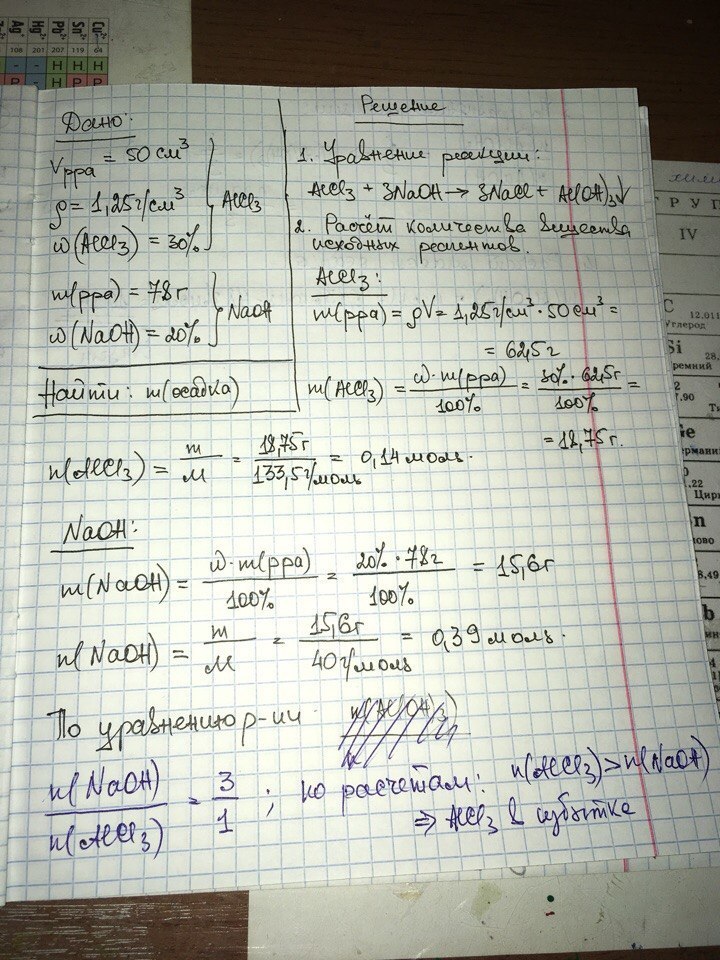 Ag⁺ Hg²⁺ Pb²⁺ Sn²⁺ Cu²⁺
108 201 207 119 64
- - Н Н Н
Р - Н Р Р
Дано:
Vрра = 50 см³
ρ = 1,25 г/см³
ω(AlCl₃) = 30%
AlCl₃
m(рра) = 78 г
ω(NaOH) = 20%
NaOH
Найти: m(осадка)
Решение
1. Уравнение реакции:
AlCl₃ + 3NaOH → 3NaCl + Al(OH)₃↓
2. Расчёт количества вещества
исходных реагентов.
AlCl₃:
m(рра) = ρV = 1,25 г/см³ · 50 см³ =
= 62,5 г
m(AlCl₃) = ω·m(рра) / 100% = 30% · 62,5 г / 100% =
= 18,75 г.
n(AlCl₃) = m / M = 18,75 г / 133,5 г/моль = 0,14 моль.
NaOH:
m(NaOH) = ω·m(рра) / 100% = 20% · 78 г / 100% = 15,6 г
n(NaOH) = m / M = 15,6 г / 40 г/моль = 0,39 моль.
По уравнению р-ии
n(NaOH) / n(AlCl₃) = 3 / 1 ; по расчетам: n(AlCl₃) > n(NaOH)
⇒ AlCl₃ в избытке
ГРУП
IV
C 12,011
Углерод
Si 28,